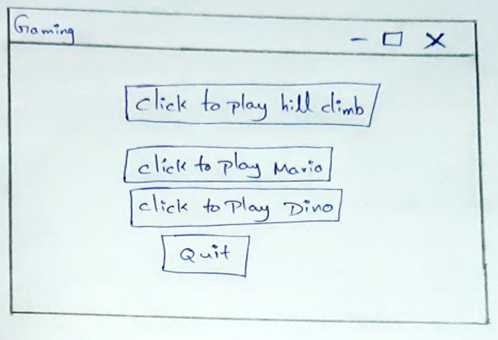 Gaming
click to play hill climb
click to play Mario
click to Play Dino
Quit